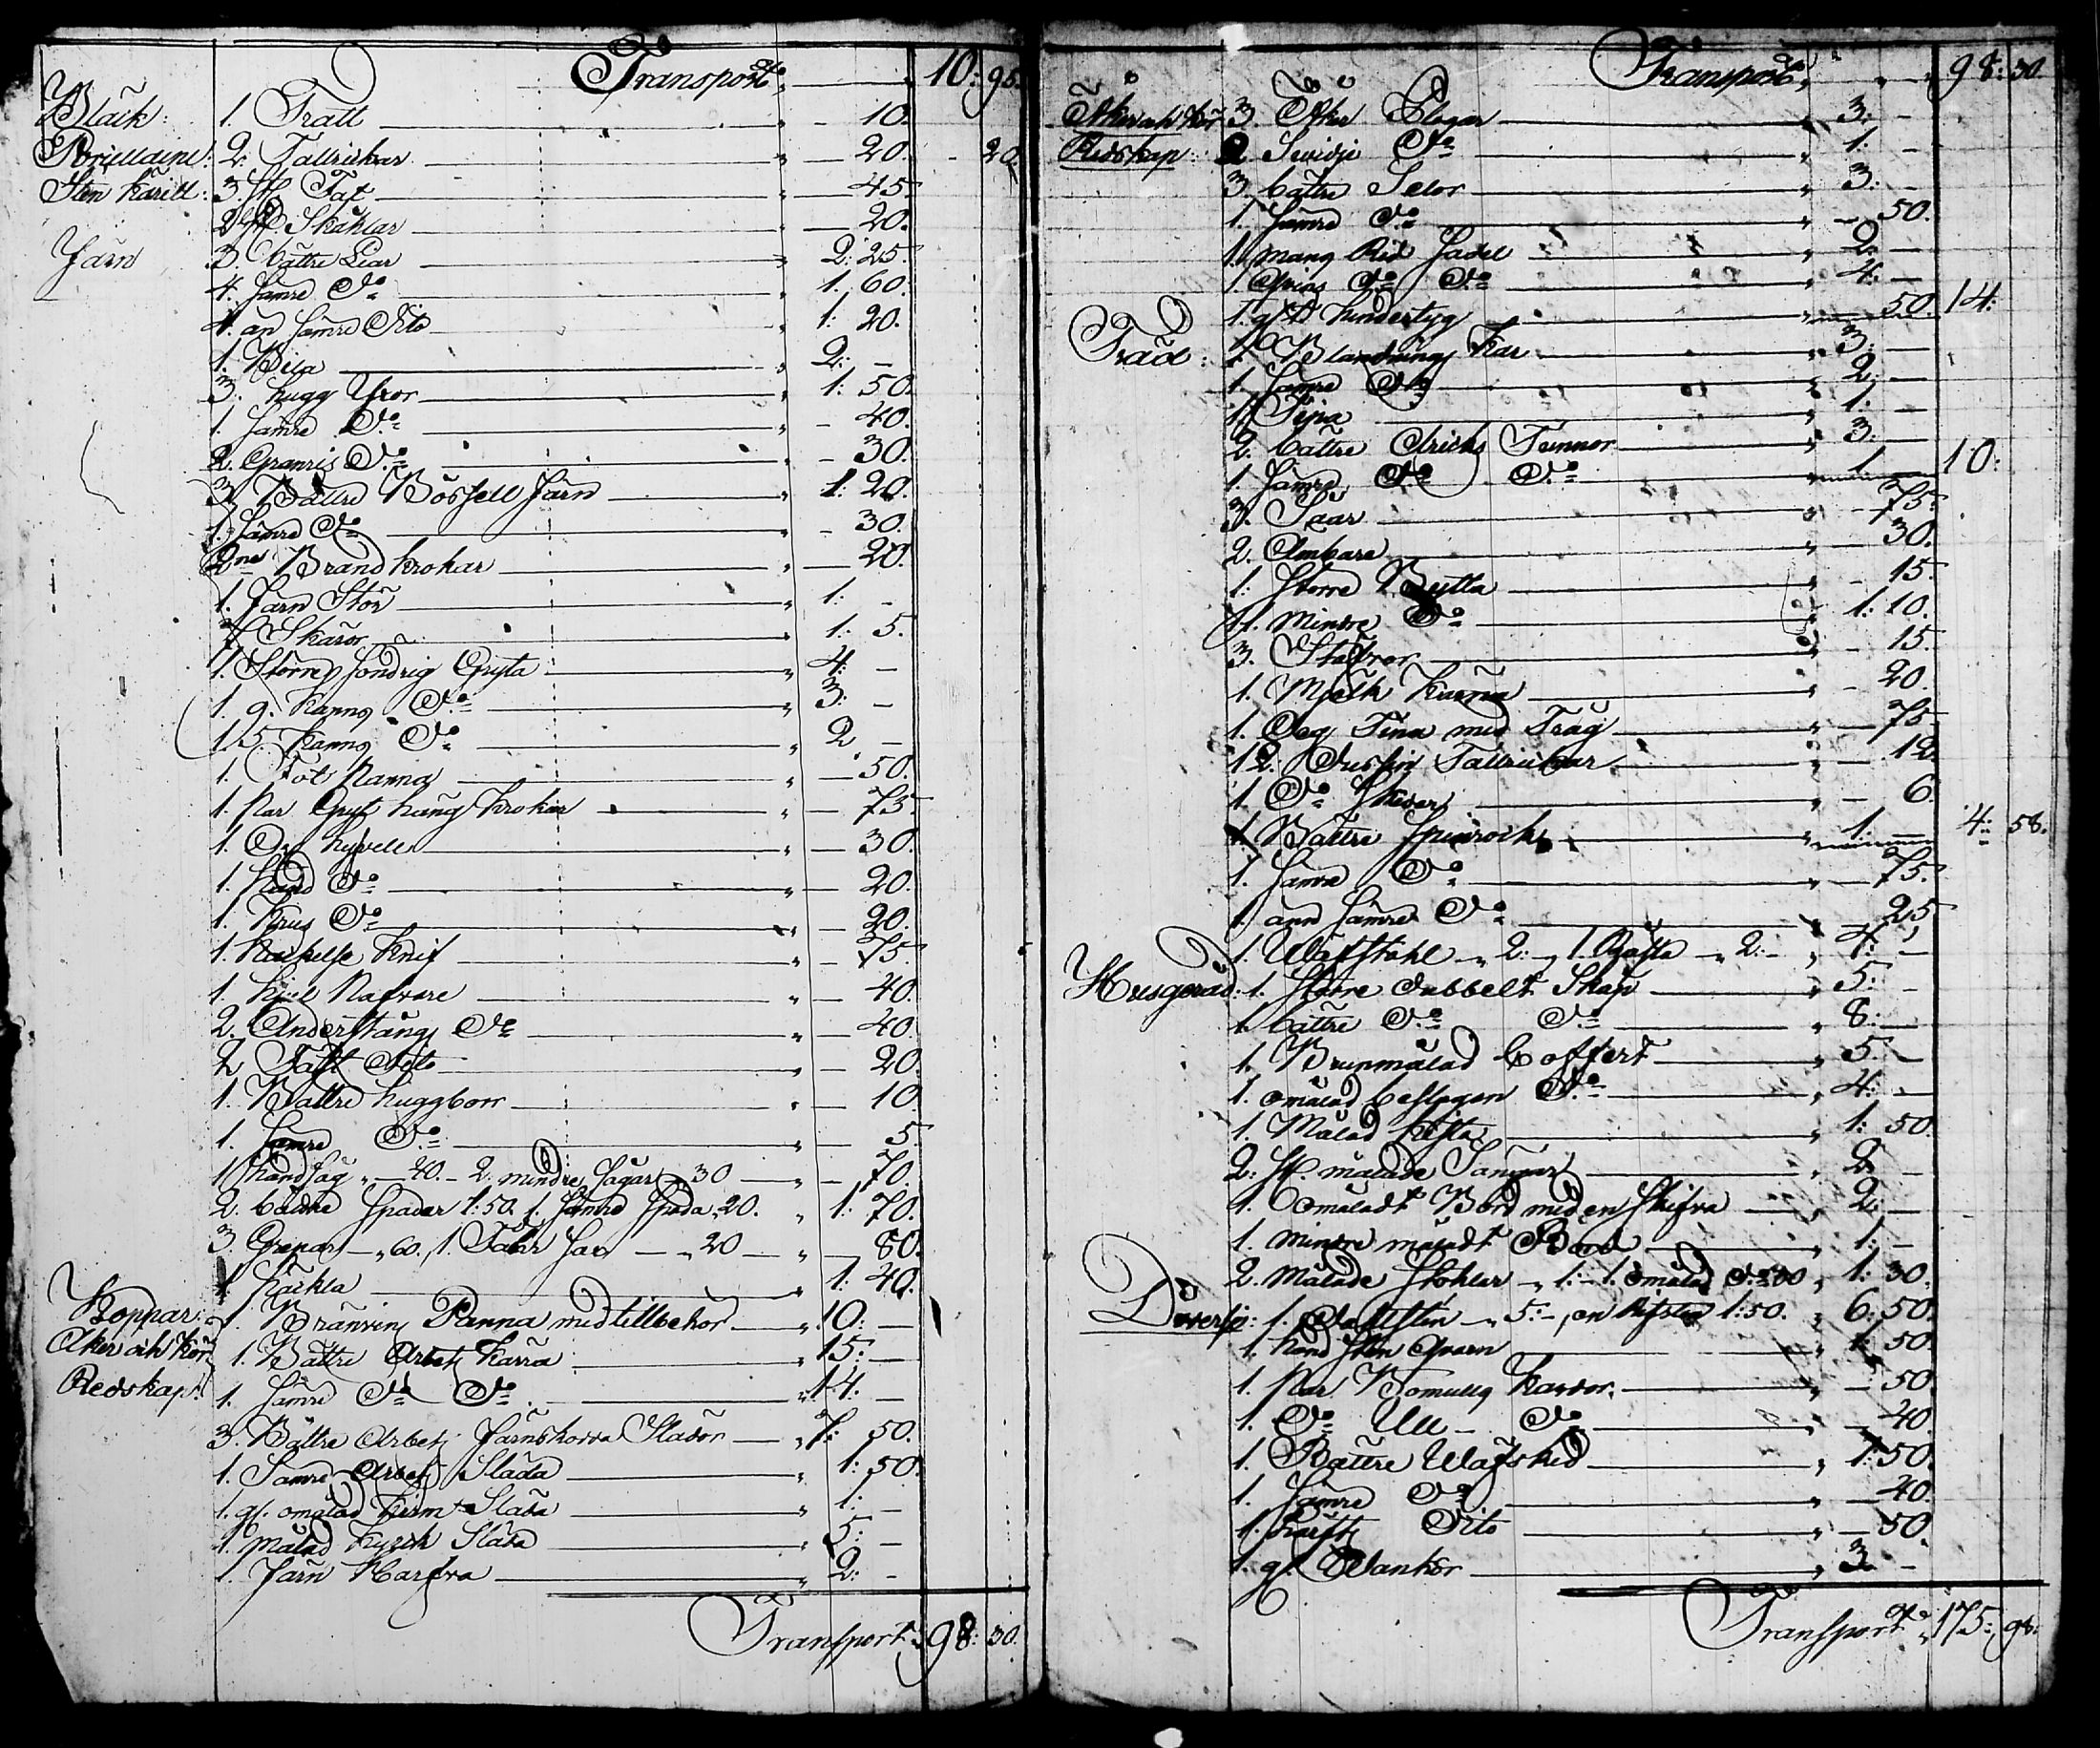 Transport 10: 95.
Bläck: 1. Tratt " — 10.
Porcellaine: 2. Tallrickar " — 20. - 20.
Sten Käril: 3. st Fat " — 45.
2 st Skåhlar — 20.
Järn 3. bättre Liar " 2: 25.
4. Sämre Do " 1. 60.
4. än sämre Dito " 1: 20.
1. Bila " 2: —
3. hugg Yxor " 1: 50.
1. Sämre Do " - 40.
2. Granris Do " - 30.
3. Bättre Järn " 1: 20.
1. Sämre Do " - 30.
2ne Brand krokar " — 20.
1. Järn Stör " 1: -
Skäror " 1: 5.
1. Större Söndrig Gryta " 4: —
1. 9. Kanns Do " 3: —
1. 5. Kanns Do " 2 —
1. Fot Panna " — 50.
1. Par Gryt häng krokar " — 75.
1. Hyvell " — 30.
1. Do " — 20.
1. Krus Do " — 20.
1. Hackelse Knif " — 75.
1. Hjul Nafvare " — 40.
2. Anderstångs Do " — 40.
2 Dito " — 20.
1. Bättre huggborr " — 10.
1. Sämre Do " — 5
1 Handsåg " — 40. - 2. mindre Sågar " 30 — " — 70.
2. bättre Spadar 1:50. 1. Sämre Spada " 20. " 1: 70.
3. Grepar — " 60. 1. — " 20 — " — 80.
1 Häckla " 1: 40.
Koppar: 1. Bränvins Panna med tillbehör " 10: —
Åker och Kör 1. Bättre Arbets Kärra " 15: —
Redskap: 1. Sämre Do Do " 14: —
3. Bättre Arbets Järnskodda Slädor — " 7: 50.
1. Sämre Arbets Släda " 1: 50.
1. gl. omålad Släda " 1: —
1. målad Kyrck Släda " 5: —
1. Järn Harfva " 2: -
Transport 98: 30.
Transport " 98: 30.
Åker och Kör 3. Åker Plogar " 3: -
Redskap: 2 Svidje Do " 1: -
3. bättre Selor " 3: -
1. Sämre Do " — 50.
1. mans Rid Sadel " 2: -
1. Qvins Do Do " 4: —
1. gl. hundertyg " — 50. 14:
Träd: 1. Blandnings Kar " 3: —
1. Sämre Do " 2: —
1. Tina 1: —
2. bättre Dricks Tunnor " 3: —
1. Sämre Do Do " 1. — 10:
3. Såar — 75.
2. Ambare " — 30.
1: Större Bytta " - 15.
11. Mindre Do 1: 10.
3. Stäfvor " - 15.
1. Mjölk Kärna " - 20.
1. Deg Tina med Tråg " — 75.
12. Dussin Tallrickar " — 12.
1. Do Skedar " — 6.
1 Bättre Spinrock " 1: — 4: 58.
1. Sämre Do " — 75.
1. änn Sämre Do " 25
1. Wäfstohl " 2: " 1. " 2: - " 4: —
Husgeråd: 1. Större Dubbelt Skåp " 5: -
1. bättre Do Do " 8: —
1. Brunmålad Coffert " 5: —
1. omålad beslagen Do " 4: —
1. Målad Kista " 1: 50.
2. st. målade Sängar " 2: -
1. Omåladt Bord med en Skifva " 2: —
1. mindre måladt Bord " 1: -
2. Målade Stohlar " 1: - 1. omålad Do 30 " 1: 30.
Diverse: 1. " 5: - , en 1:50. " 6: 50.
1. hand Sten Qvarn " 1: 50.
1. Par Bomulls Kardor " — 50.
1. Do Ull - Do " — 40
1. Bättre Wäfsked " 1: 50.
1. Sämre Do " — 40.
1. Dito " — 50.
1. gl. " 3 -
Transport 175: 98.